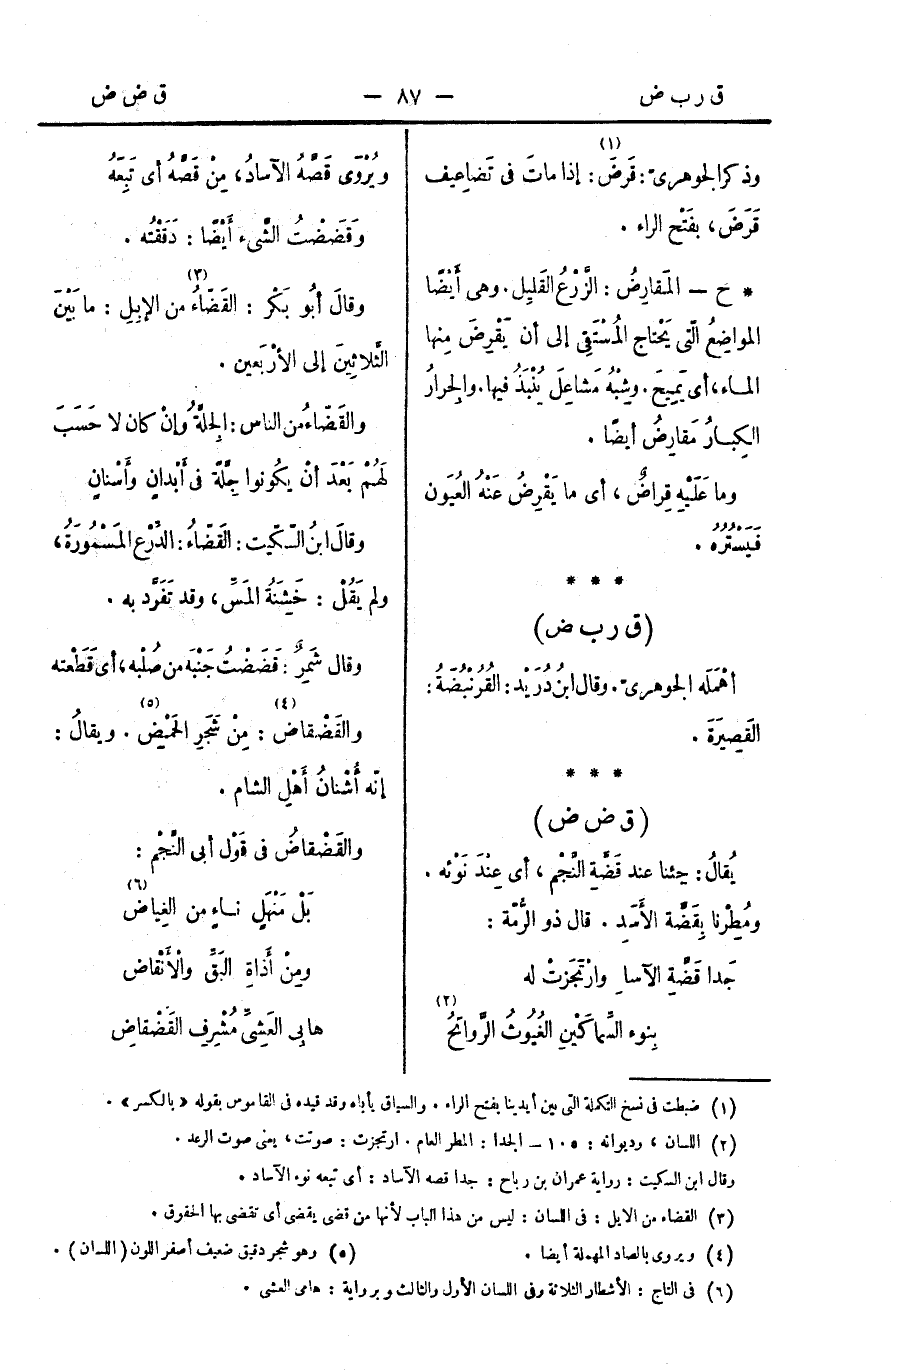 ق ر ب ض
— ٨٧ —
ق ض ض
وذكر الجوهرىّ: قَرَضَ(١): إذا ماتَ فى تَضاعِيف
قَرَضَ، بفَتْح الراء .
* ح — المَقارِضُ : الزَّرْعُ القَلِيل. وهى أَيْضًا
المواضِعُ الّتى يَحْتاج المُسْتَقِى إلى أن يَقْرِضَ مِنها
الماء، أى يَمِيح. وشِبْهُ مَشاعِلَ يُنْبَذُ فيها. والجِرارُ
الكِبارُ مَقارِضُ أيضًا .
وما عَلَيْهِ قِراضٌ ، أى ما يَقْرِضُ عَنْهُ العُيَون
فَيَسْتُرُه .
* * *
(ق ر ب ض)
أهْمَلَه الجوهرىّ. وقال ابنُ دُرَيْد : القُرُنْبُضَةُ :
القَصِيرَةَ .
* * *
(ق ض ض)
يُقالُ : جِئنا عند قَضَّةِ النَّجْم ، أى عِنْدَ نَوْئه .
ومُطِرْنا بِقَضَّة الأَسَد . قال ذو الرُّمّة :
جَدا قَضَّةِ الآسا دِ وارْتَجَزَتْ له
بِنوء السَّماكَيْنِ الغُيُوثُ الرَّوائحُ(٢)
ويُرْوَى قَصَّهُ الآسادُ، مِنْ قَصَّهُ أى تَبِعَهُ
وقَضَضْتُ الشَّىء أَيْضًا : دَقَقْتُه .
وقالَ أبُو بَكْر : القَضّاءُ(٣) من الإبِلِ : ما بَيْنَ
الثَّلاثِينَ إلى الأرْبَعين .
والقَضّاءُ من الناس : الجِلَّةُ وإنْ كان لا حَسَبَ
لَهُمْ بَعْدَ أنْ يكُونوا جِلَّةً فى أَبْدانٍ وأَسْنانٍ
وقالَ ابنُ السّكّيت : القَضّاءُ : الدِّرْع المَسْمُورَةُ،
ولم يَقُلْ : خَشِنَةُ المَسِّ، وقد تَفَرَّد به .
وقال شَمِرٌ : قَضَضْتُ جَنْبَه من صُلْبِه، أى قَطَعْته
والقَضْقاض(٤) : مِنْ شَجَرِ الحَمْيض(٥) . ويقالُ :
إنّه أُشْنانُ أَهْلِ الشام .
والقَضْقاضُ فى قَوْل أبى النَّجْم :
بَلْ مَنْهَلٍ ناءٍ من الغِياضِ(٦)
ومِنْ أَذاةِ البَقِّ والأَنْقاض
هابِى العَشِىِّ مُشْرِفِ القَضْقاض
(١) ضبطت فى نسخ التكملة التى بين أيدينا بفتح الراء . والسياق يأباه وقد قيده فى القاموس بقوله « بالكسر » .
(٢) اللسان ، وديوانه : ١٠٥ — الجدا : المطر العام . ارتجزت : صوتت، يعنى صوت الرعد .
وقال ابن السكيت : رواية عمران بن رباح : جدا قصه الآساد : أى تبعه نوء الآساد .
(٣) القضاء من الابل : فى اللسان : ليس من هذا الباب لأنها من قضى يقضى أى تقضى بها الحقوق .
(٤) ويروى بالصاد المهملة أيضا .
(٥) وهو شجر دقيق ضعيف أصفر اللون (اللسان) .
(٦) فى التاج : الأشطار الثلاثة وفى اللسان الأول والثالث وبرواية : هامى العشى .